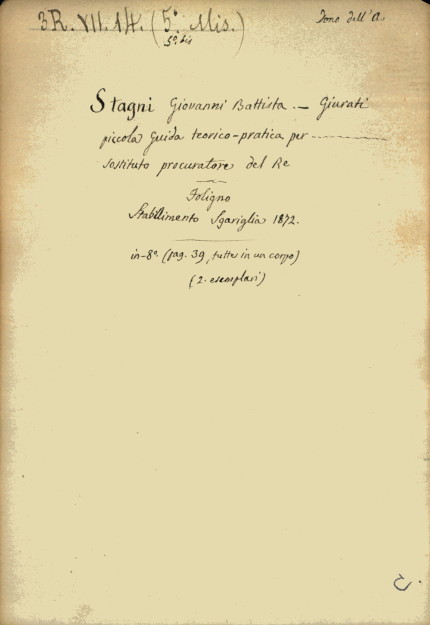 3R. VII. 14. (5° Mis.)
5° bis
Dono dell'A.
Stagni Giovanni Battista. — Giurati
piccola guida teorico-pratica per
sostituto procuratore del Re
Foligno
Stabilimento Sgariglia 1872.
in-8° (pag. 39, tutte in un corpo)
(2. esemplari)